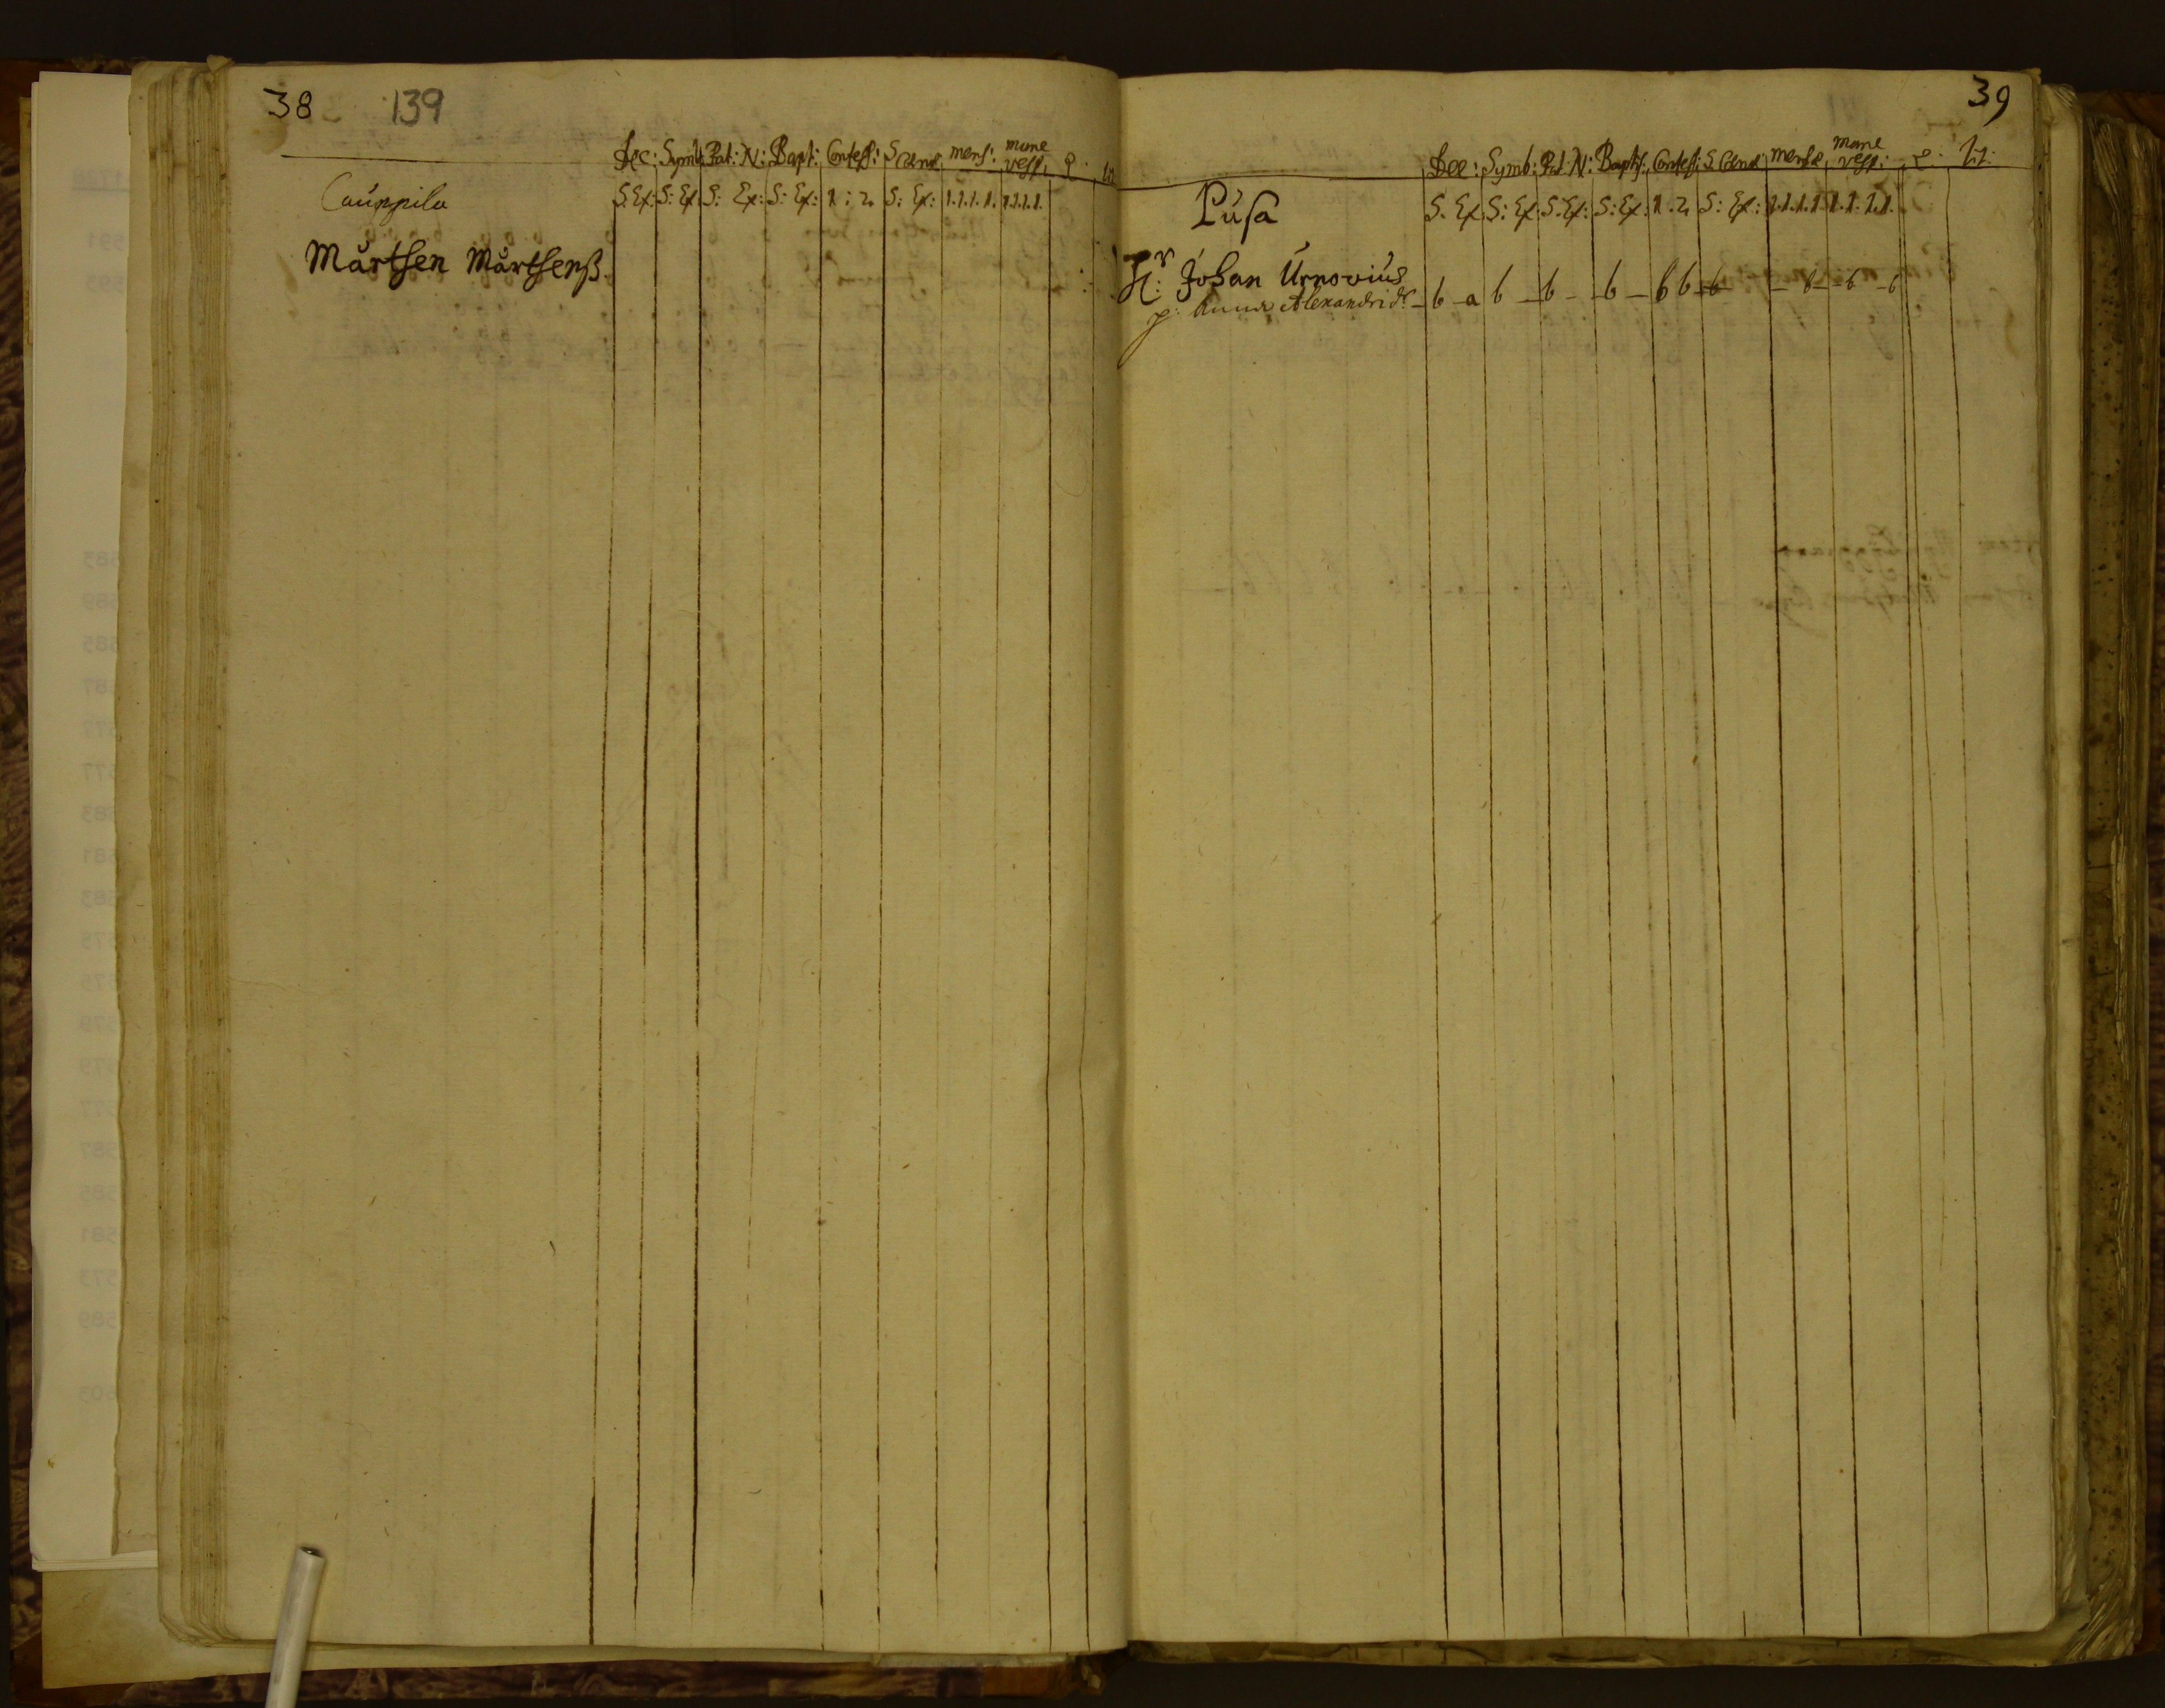 38 139
Dec: Symb: Pat: N: Bapt: Confess: S Cænæ: mens: mane
vesp:
Cauppila S: Ex: S: Ex: S: Ex: S: Ex: 1 : 2 S: Ex: 1.1.1.1. 1.1.1.1.
Mårtsen Mårtsenß
39
Dec: Symb: Pat: N: Baptis: Confess: S. Cænæ mensæ mane
vesp:
Pusa S. Ex S: Ex S. Ex: S: Ex: 1 . 2 S: Ex: 1.1.1.1 1.1.1.1.
Hr: Johan Urnovius
p: Anna Alexandri dr - b - a b - b - - b - b b - b - b - - b - b